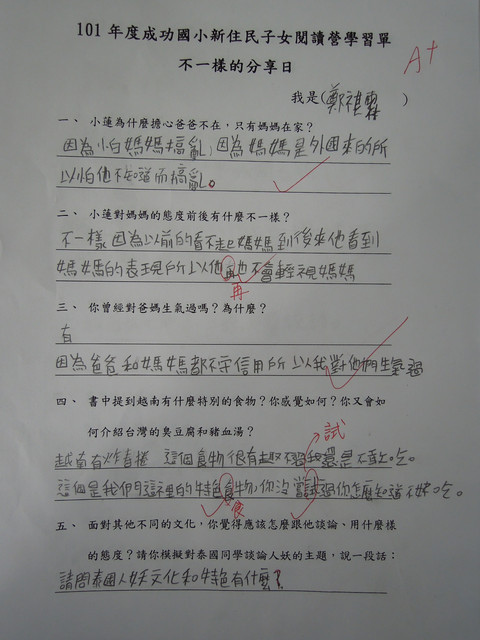 101 年度成功國小新住民子女閱讀營學習單
不一樣的分享日
A+
我是(鄭祺霖)
一、 小蓮為什麼擔心爸爸不在，只有媽媽在家？
因為怕媽媽搞亂，因為媽媽是外國來的所
以怕他不知道而搞亂。
二、 小蓮對媽媽的態度前後有什麼不一樣？
不一樣因為以前的看不起媽媽到後來他看到
媽媽的表現所以他再也不會輕視媽媽
再
三、 你曾經對爸媽生氣過嗎？為什麼？
有
因為爸爸和媽媽都不守信用所以我對他們生氣過
四、 書中提到越南有什麼特別的食物？你感覺如何？你又會如
何介紹台灣的臭豆腐和豬血湯？
試
越南有炸春捲 這個食物很有趣不過我還是不敢吃。
這個是我們這裡的特色食物，你沒嘗試過你怎麼知道不好吃。
五、 面對其他不同的文化，你覺得應該怎麼跟他談論、用什麼樣
的態度？請你模擬對泰國同學談論人妖的主題，說一段話：
請問泰國人妖文化和特色有什麼？